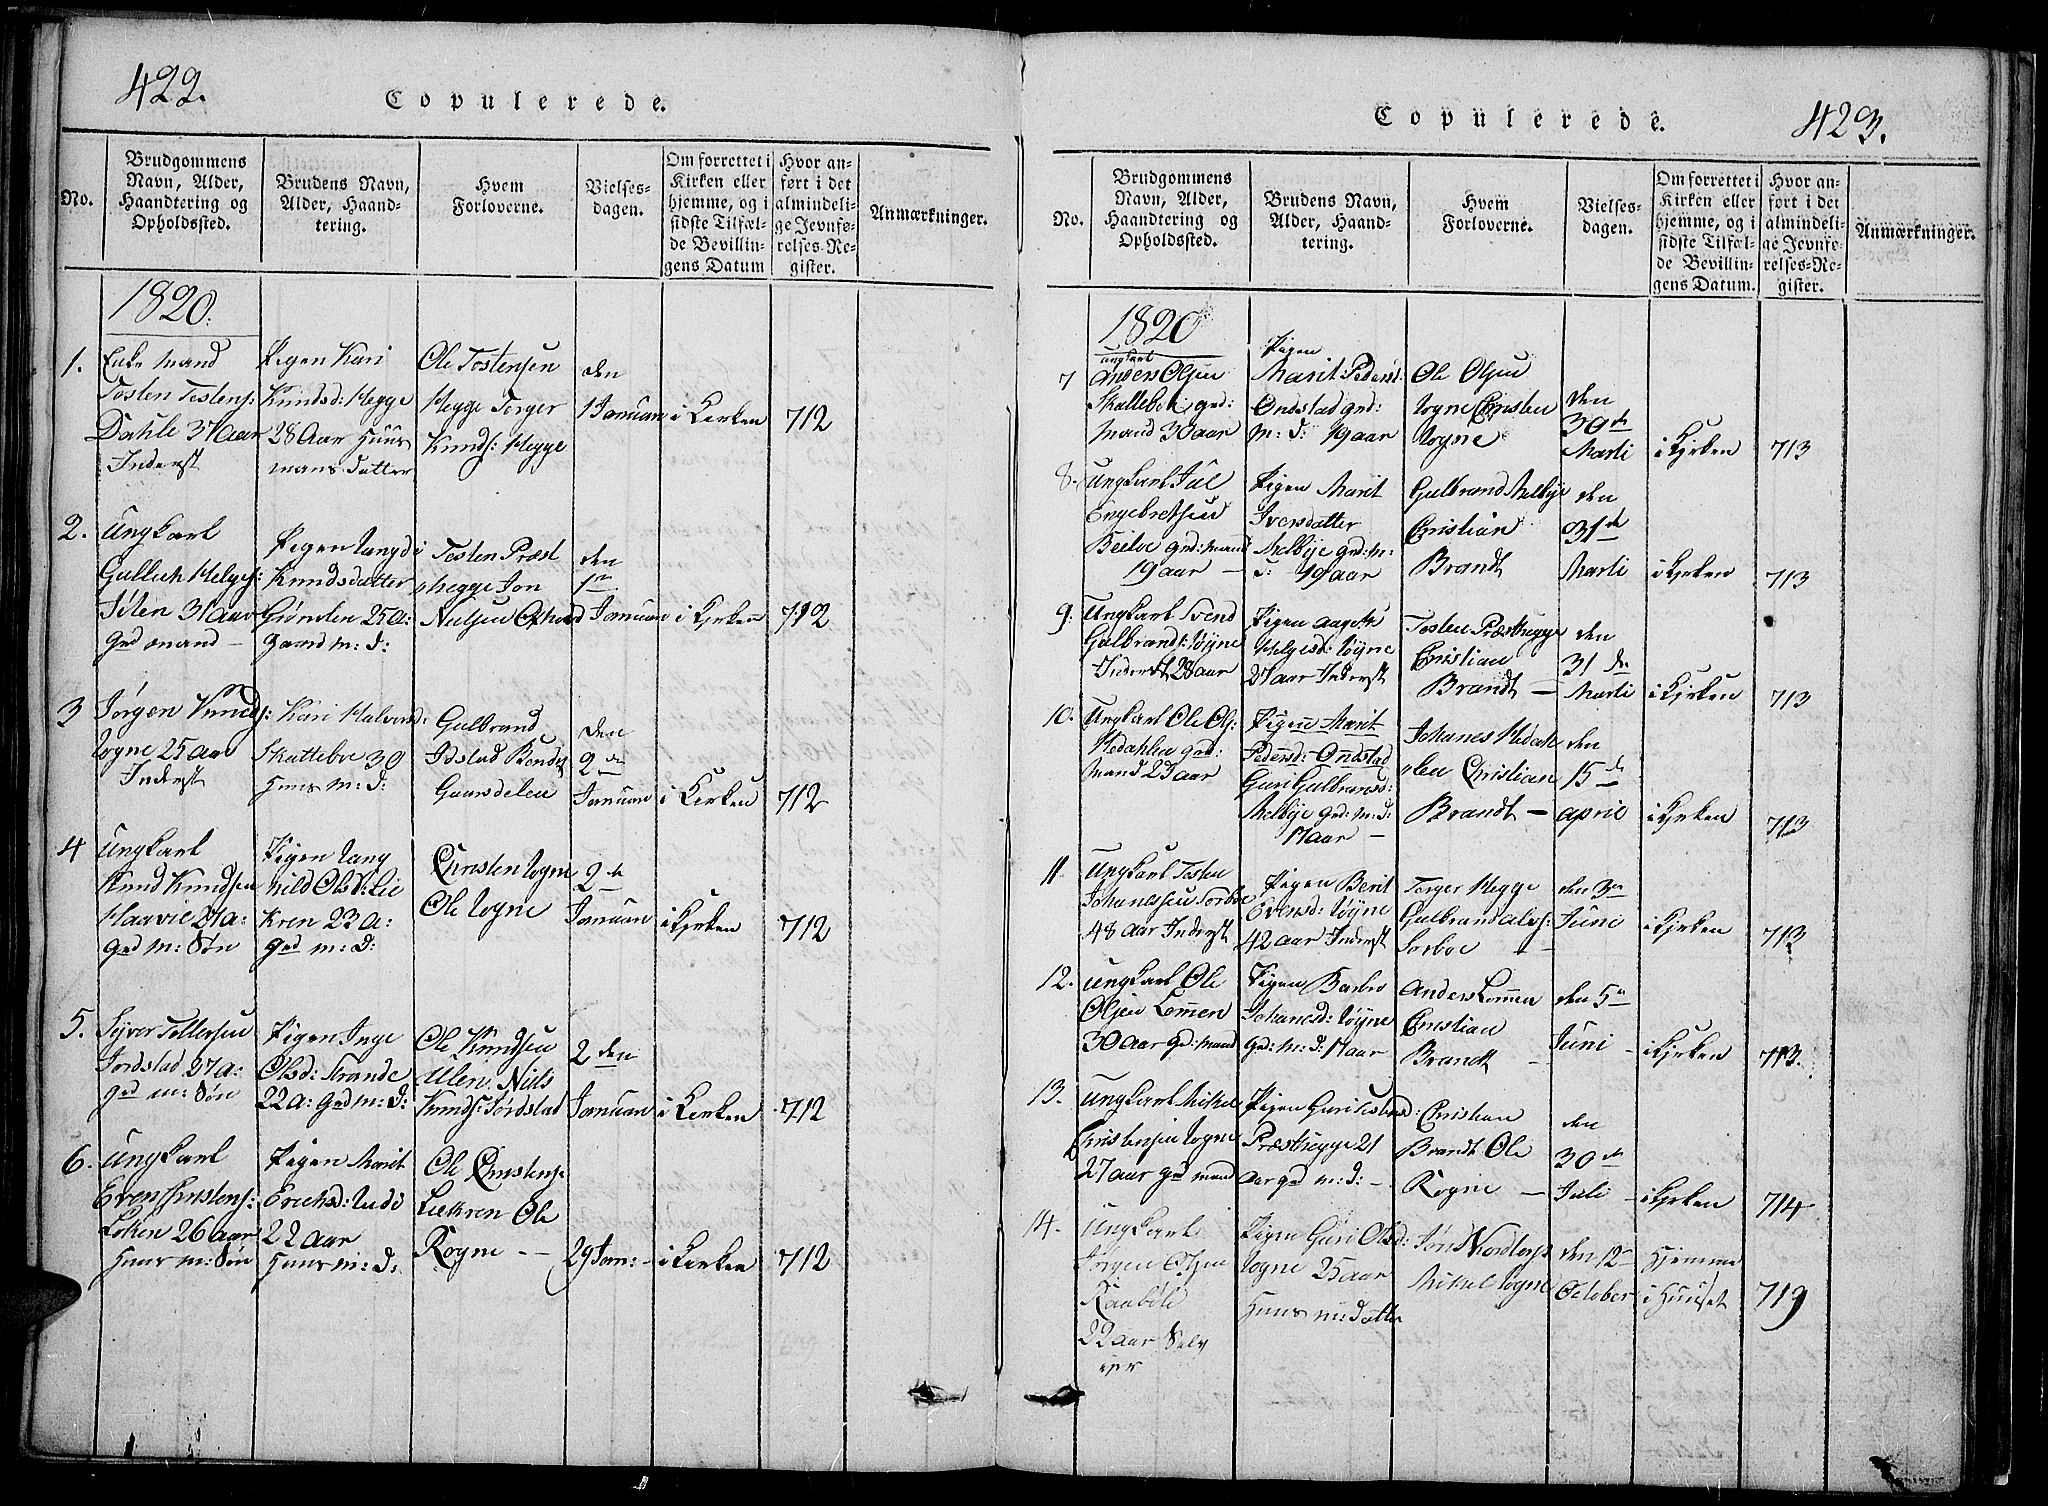 422.
Copulerede.
No.
Brudgommens
Navn, Alder,
Haandtering og
Opholdssted.
Brudens Navn,
Alder, Haand-
tering.
Hvem
Forloverne.
Vielses-
dagen.
Om forrettet i
Kirken eller
hjemme, og i
sidste Tilfæl-
de Bevillin-
gens Datum
Hvor an-
ført i det
almindeli-
ge Jevnfø-
relses-Re-
gister.
Anmærkninger.
1820.
1.
Enke Mand
Tosten Tostens:
Dahle 31 Aar
Inderst
Pigen Kari
Knudsd: Hegge
28 Aar Huus
mans datter
Ole Tostensen
Hegge Torger
Knuds: Hegge
den
1 Januari
i Kirken
712
2.
Ungkarl
Gullich Helges:
31 Aar
Grd mand
Pigen
Knudsdatter
25 a:
Gaard m: d:
Tosten Præst
hegge Jon
Nielsen
den
1te
Januari
i Kirken
712
3
Jørgen Knuds:
Vogne 25 aar
Inderst
Kari Halvors:
Skatteboe 30
Huus m: d:
Gulbrand
Ildstad
den
2de
Januari
i Kirken
712
4
Ungkarl
Knud Knudsen
Haavie 27 a:
Grd m: Søn
Pigen Rang
nild Olsd: Lie
Kren 23 a:
grd m: D:
Christen Vogne
Ole Vogne
2de
Januari
i Kirken
712
5.
Syver Tollersen
Jordstad 27 a:
grd m: Søn
Pigen Inge
Olsd: Strande
22 a: grd m: D:
Ole Knudsen
Ulen. Niels
Knuds: Jordstad
2den
Januari
i Kirken
712
6.
Ungkarl
Even Christens:
Loken 26 aar
Huus m: Søn
Pigen Marit
Erichsd:
22 aar
Huus m: D:
Ole Christens:
Liekren Ole
Rogne - -
29 Jan: -
i Kirken
712
Copulerede.
423.
No.
Brudgommens
Navn, Alder,
Haandtering og
Opholdssted.
Brudens Navn,
Alder, Haand-
tering.
Hvem
Forloverne.
Vielses-
dagen.
Om forrettet i
Kirken eller
hjemme, og i
sidste Tilfæl-
de Bevillin-
gens Datum.
Hvor an-
ført i det
almindeli-
ge Jevnfø-
relses-Re-
gister.
Anmærkninger.
1820
7
Ungkarl
Anders Olsen
Skattebo, grd:
mand 30 aar
Pigen
Marit Pedersd:
Ondstad grd:
m: d: 19 aar
Ole Olsen
Vogne Christen
Vogne
den
30te
Marti
i Kirken
713
8.
Ungkarl Jul
Engebretsen
grd: mand
19 aar -
Pigen Marit
Iversdatter
Melbye grd: m:
d: 19 aar
Gulbrand Melbye
Christian
Brandt
den
31te
Marti
i Kirken
713
9.
Ungkarl Svend
Gulbrands: Vøgne
Inderst 28 aar
Pigen Aagoth
Helgesd: Vøgne
27 aar Inderst
Tosten Præsthegge
Christian
Brandt -
den
31te
Marti
i Kirken
713
10.
Ungkarl Ole Ols:
Hedahlen grd:
mand 23 aar
Pigen Marit
Pedersd: Ondstad
Guri Gulbransd:
Melbye grd: m: d:
17 aar -
Johanes Hedah
len Christian
Brandt -
den
15de
April
i Kirken
713
11.
Ungkarl Tosten
Johanesen Sorboe
48 aar Inderst
Pigen Berit
Evensd: Vøgne
42 aar Inderst
Torger Hegge
Gulbrand
Sorboe -
den 3die
Juni
i Kirken
713
12.
Ungkarl Ole
Olsen Lomen
30 aar grd: mand
Pigen Barbro
Johanesd: Vøgne
grd: m: d: 17 aar
Anders Lomen
Christian
Brandt -
den 5te
Juni -
i Kirken
713.
13.
Ungkarl Mikel
Christensen Vogne
27 aar grd mand
Pigen Guri Tostensd:
Præsthegge 21
aar grd m: d: -
Christian
Brandt Ole
Rogne -
den
30te
Juli -
i Kirken
714
14.
Ungkarl
Jørgen Olsen
Raabøle
22 aar Selv
eier
Pigen Guri Olsd:
Vogne 25 aar
Huus m: datter
Jon Nordtorp
Mikel Vogne
den 12te
October
Hjemme
i Huuset
719